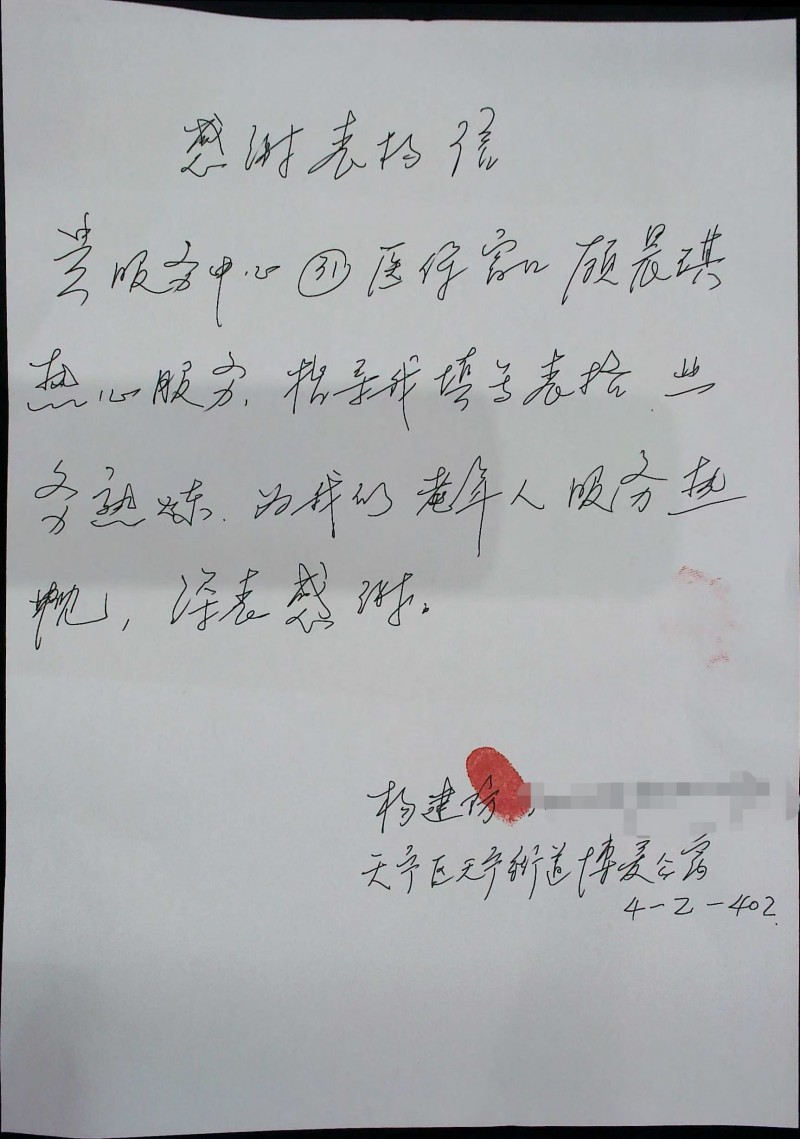 感谢表扬信
贵服务中心㉛医保窗口顾晨琪
热心服务，指导我填写表格，业
务熟炼，为我们老年人服务热
忱，深表感谢。
杨建
天宁区天宁街道博爱公寓
4-2-402